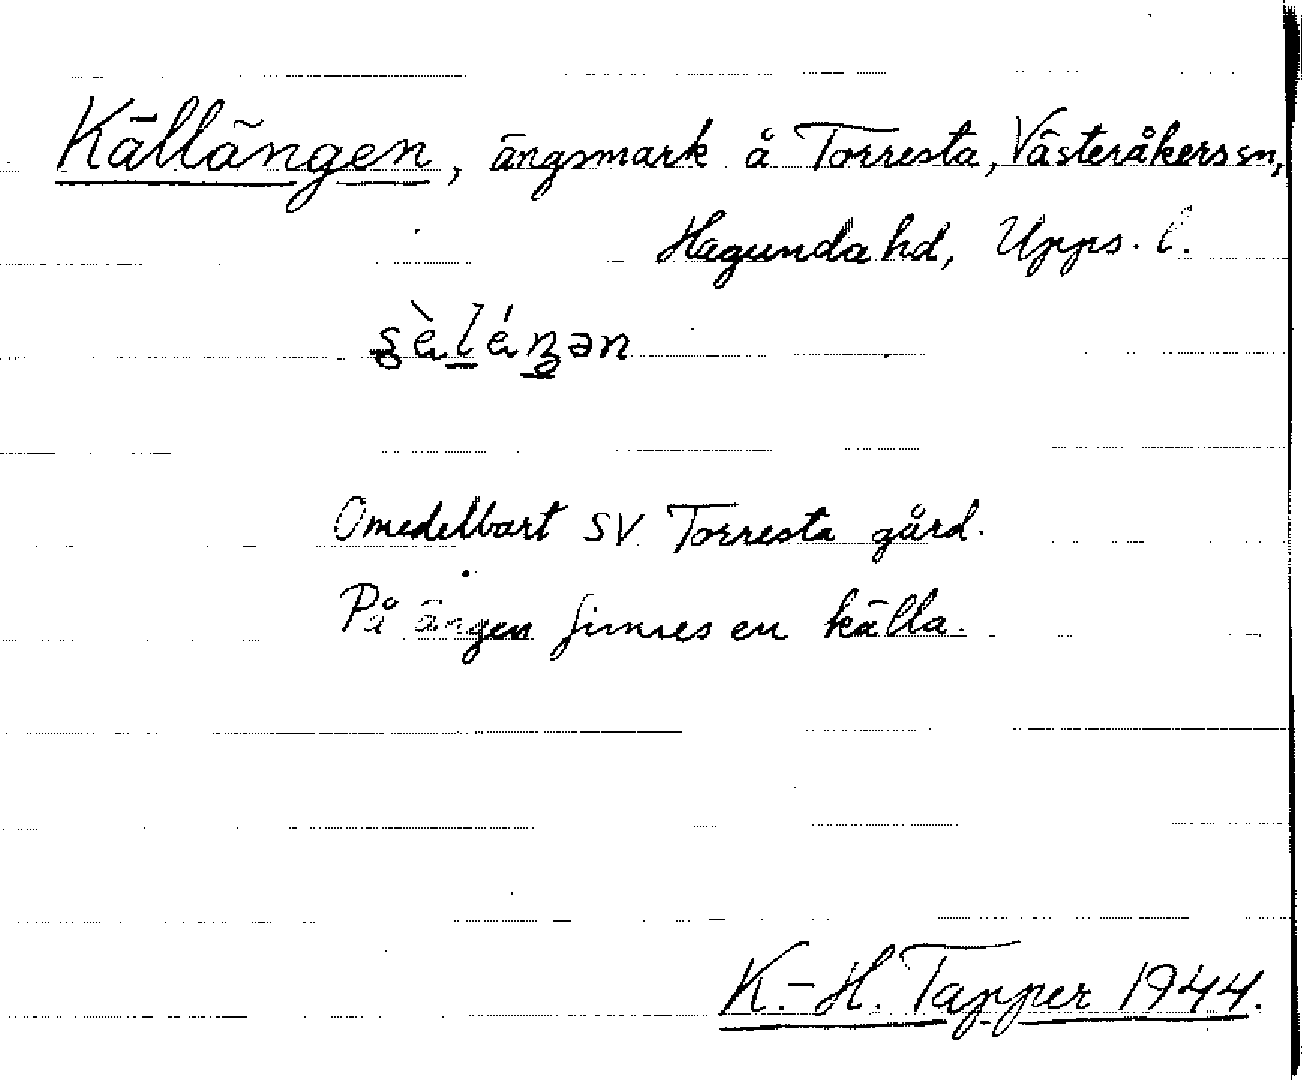 Källängen, ängsmark å Torresta, Västeråkers sn,
Hagunda hd, Upps. l.
Omedelbart SV Torresta gård.
På ängen finnes en källa.
K.-H. Tapper 1944.